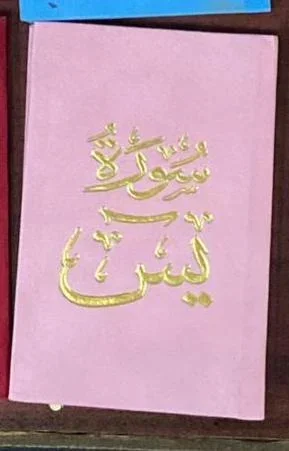 سُوْرَةُ
يٰسٓ